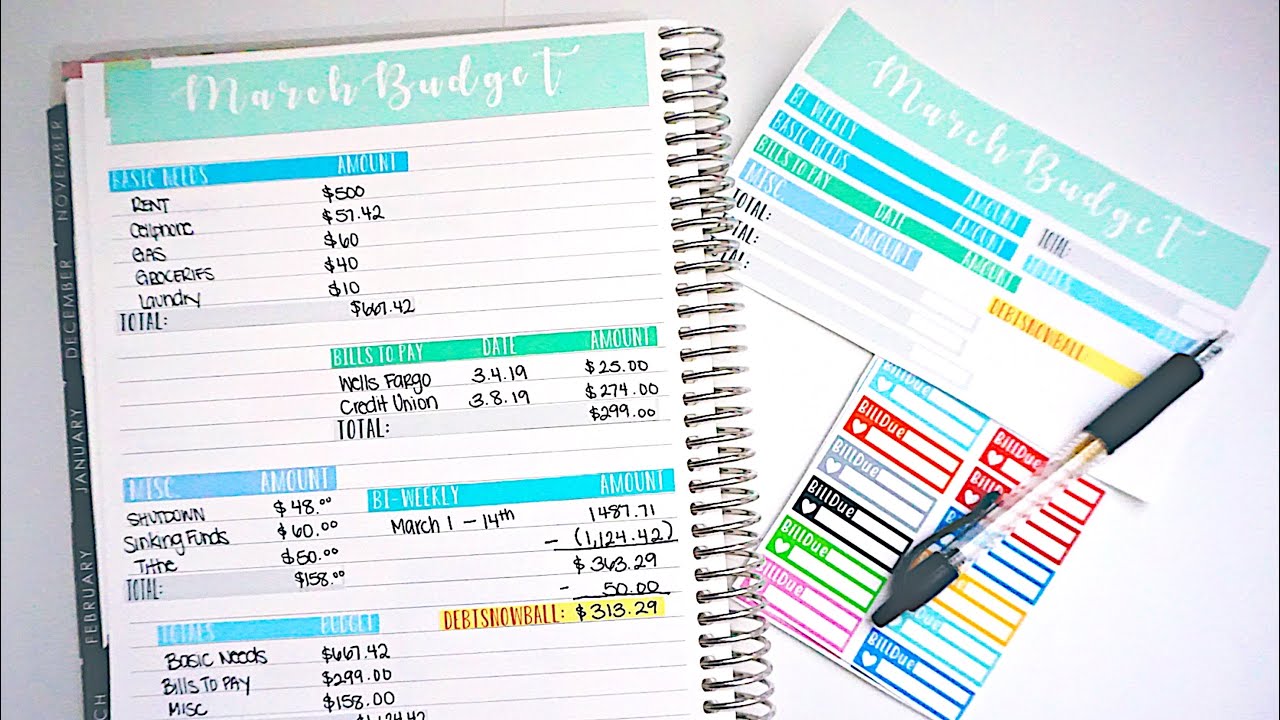 March Budget
BASIC NEEDS AMOUNT
RENT $500
Cellphone $57.42
GAS $60
GROCERIES $40
Laundry $10
TOTAL: $667.42
BILLS TO PAY DATE AMOUNT
Wells Fargo 3.4.19 $25.00
Credit Union 3.8.19 $274.00
TOTAL: $299.00
MISC AMOUNT
SHUTDOWN $48.00
Sinking Funds $60.00
Tithe $50.00
TOTAL: $158.00
BI-WEEKLY AMOUNT
March 1 - 14th 1487.71
- (1,124.42)
$363.29
- 50.00
DEBTSNOWBALL: $313.29
TOTALS BUDGET
Basic Needs $667.42
Bills To Pay $299.00
MISC $158.00
$1,124.42
NOVEMBER
DECEMBER
JANUARY
FEBRUARY
March Budget
BI-WEEKLY AMOUNT
BASIC NEEDS AMOUNT
BILLS TO PAY DATE AMOUNT
MISC AMOUNT
TOTAL:
TOTAL:
TOTAL:
TOTAL:
TOTALS
DEBTSNOWBALL:
BillDue
BillDue
BillDue
BillDue
BillDue
BillDue
BillDue
BillDue
BillDue